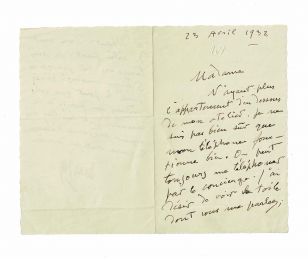 23 Avril 1932
Madame
N'ayant plus
l'appartement du dessus
de mon atelier. je ne
suis pas bien sûr que
mon téléphone fonc-
tionne bien. On peut
toujours me téléphoner
par le concierge. j'ai
désir de voir la toile
dont vous me parlez,